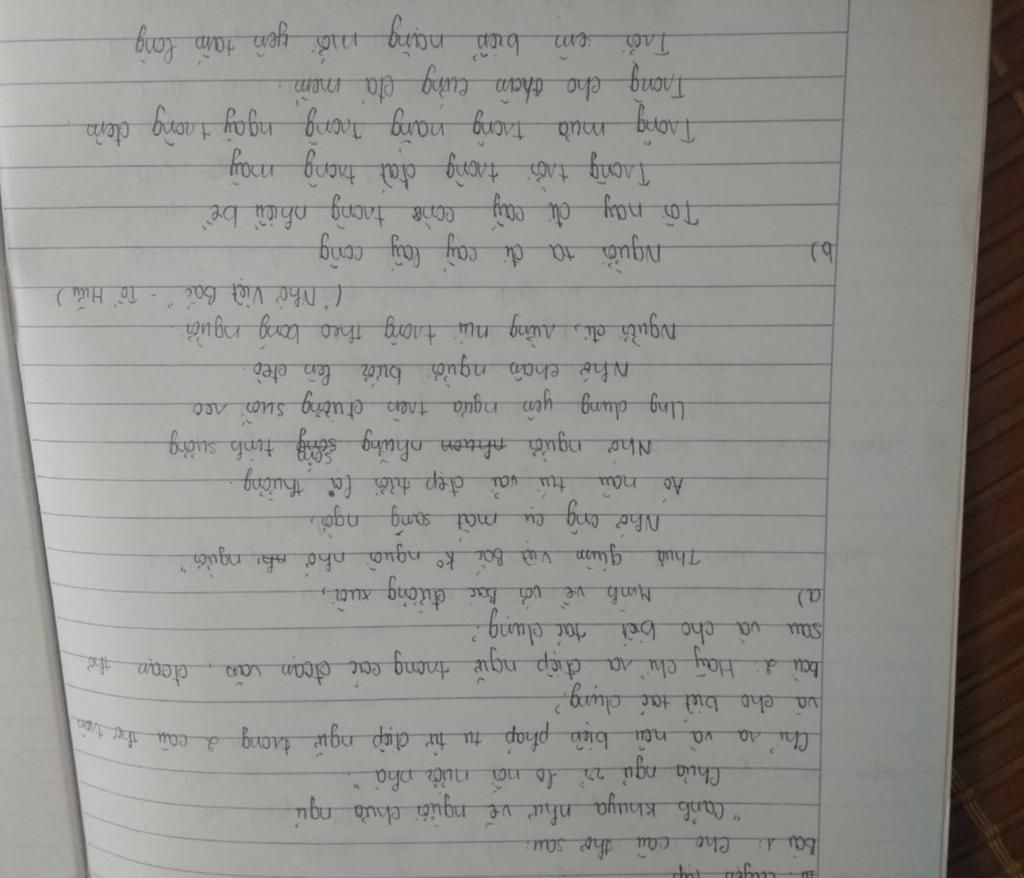 III. Luyện tập
Bài 1: Cho câu thơ sau:
"Cảnh khuya như vẽ người chưa ngủ
Chưa ngủ vì lo nỗi nước nhà"
Chỉ ra và nêu biện pháp tu từ điệp ngữ trong 2 câu thơ trên
và cho biết tác dụng?
Bài 2: Hãy chỉ ra điệp ngữ trong các đoạn văn, đoạn thơ
sau và cho biết tác dụng?
a) Mình về với Bác đường xuôi,
Thưa giùm Việt Bắc k° nguôi nhớ người
Nhớ ông cụ mắt sáng ngời,
Áo nâu túi vải đẹp tươi lạ thường.
Nhớ người những sáng tinh sương
Ung dung yên ngựa trên đường suối reo
Nhớ chân người bước lên đèo
Người đi, rừng núi trông theo bóng người.
("Nhớ Việt Bắc" - Tố Hữu)
b) Người ta đi cấy lấy công
Tôi nay đi cấy còn trông nhiều bề
Trông trời trông đất trông mây
Trông mưa trông nắng trông ngày trông đêm
Trông cho chân cứng đá mềm.
Trời êm biển nặng mới yên tấm lòng